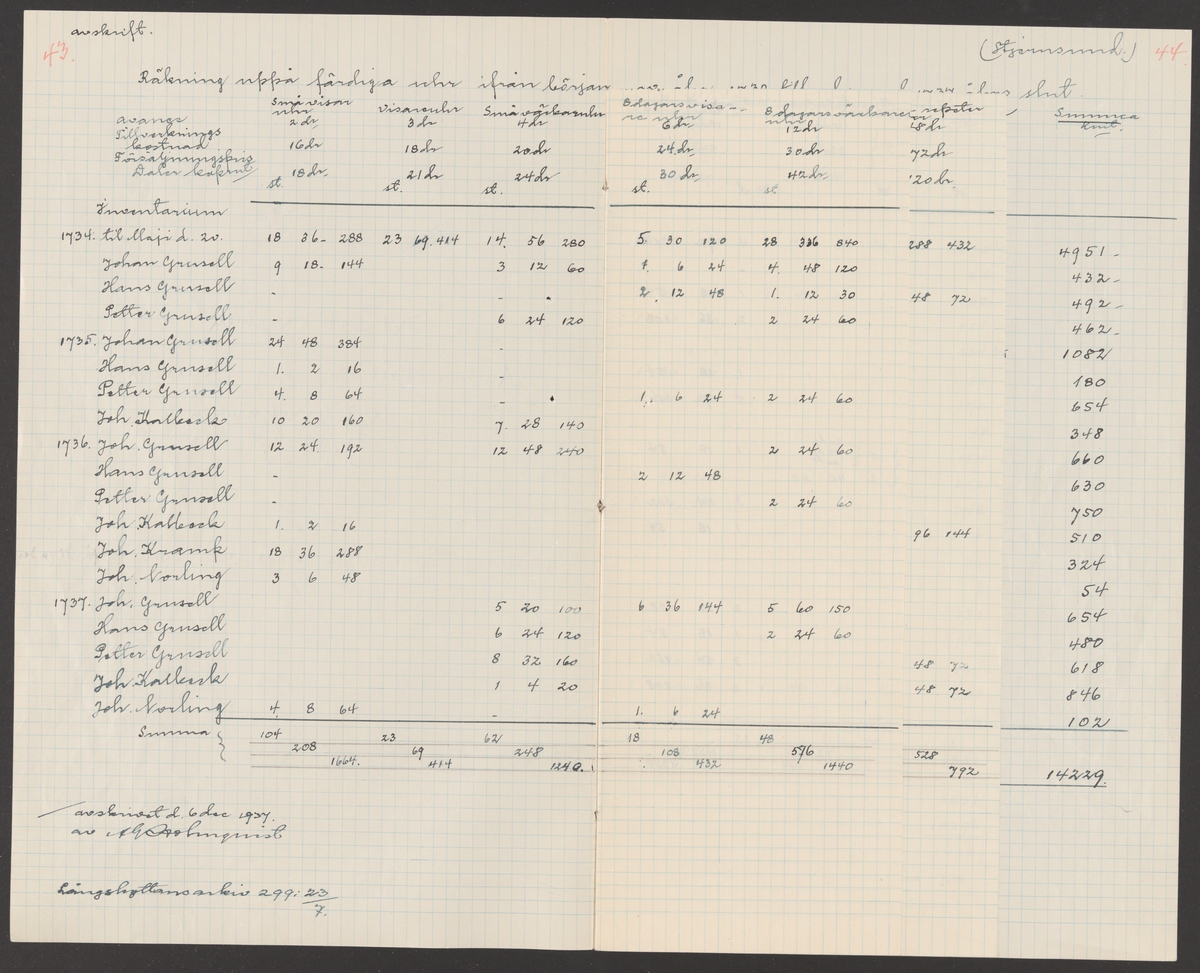 avskrift.
43.
(Stjernsund.) 44.
Räkning uppå färdiga uhr ifrån början
slut
Små visar uhr visareuhr Små väckareuhr 8 dagars visa- re uhr 8 dagars väckare uhr repeter Summa kmt.
avangs 2 dr, 3 dr 4 dr 6 dr, 12 dr 48 dr
Tillverknings
kostnad 16 dr 18 dr 20 dr 24 dr, 30 dr 72 dr
Försäljningspris
Daler kopmt 18 dr, 21 dr 24 dr 30 dr, 42 dr, 120 dr.
st. st. st. st. st
Inventarium
1734. til Maji d. 20. 18 36- 288 23 69. 414 14. 56 280 5. 30 120 28 336 840 288 432 4951-
Johan Grusell 9 18- 144 3 12 60 1. 6 24 4. 48 120 432-
Hans Grusell - - 2. 12 48 1. 12 30 48 72 492-
Petter Grusell - 6 24 120 2 24 60 462-
1735. Johan Grusell 24 48 384 - 1082
Hans Grusell 1. 2 16 - 180
Petter Grusell 4. 8 64 - 1. 6 24 2 24 60 654
Joh. Kalbeck 10 20 160 7. 28 140 348
1736. Joh. Grusell 12 24. 192 12 48 240 2 24 60 660
Hans Grusell - 2 12 48 630
Petter Grusell - 2 24 60 750
Joh. Kalbeck 1. 2 16 96 144 510
Joh. Kramp 18 36 288 324
Joh. Norling 3 6 48 54
1737. Joh. Grusell 5 20 100 6 36 144 5 60 150 654
Hans Grusell 6 24 120 2 24 60 480
Petter Grusell 8 32 160 48 72 618
Joh. Kalbeck 1 4 20 48 72 846
Joh. Norling 4. 8 64 - 1. 6 24 102
Summa 104 23 62 18 48
208 69 248 108 576 528
1664. 414 1240. 432 1440 792 14229.
avskrivet d. 6 dec 1937.
av A G Holmquist
Långshyttans arkiv 299: 23
7.